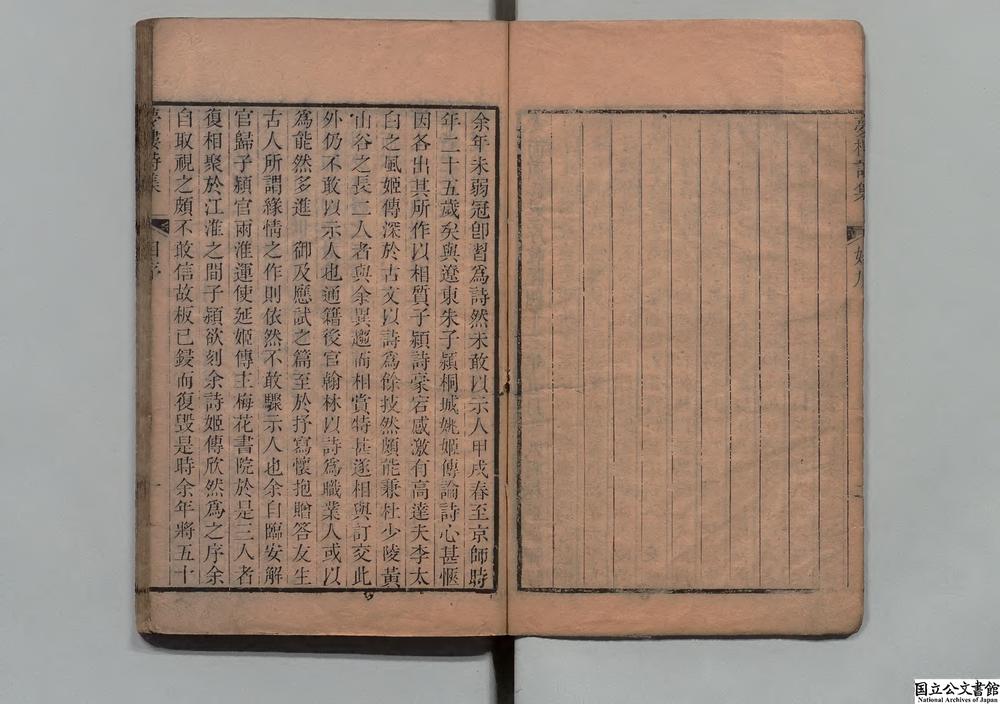 夢樓詩集
余年未弱冠卽習爲詩然未敢以示人甲戌春至京師時
年二十五歲矣與遼東朱子潁桐城姚姬傳論詩心甚愜
因各出其所作以相質子潁詩豪宕感激有高達夫李太
白之風姬傳深於古文以詩爲餘技然頗能兼杜少陵黃
山谷之長二人者與余異趣而相賞特甚遂相與訂交此
外仍不敢以示人也通籍後官翰林以詩爲職業人或以
爲能然多進 御及應試之篇至於抒寫懷抱贈答友生
古人所謂緣情之作則依然不敢驟示人也余自臨安解
官歸子潁官兩淮運使延姬傳主梅花書院於是三人者
復相聚於江淮之間子潁欲刻余詩姬傳欣然爲之序余
自取視之頗不敢信故板已鋟而復毀是時余年將五十
夢樓詩集
自序
一
国立公文書館
National Archives of Japan